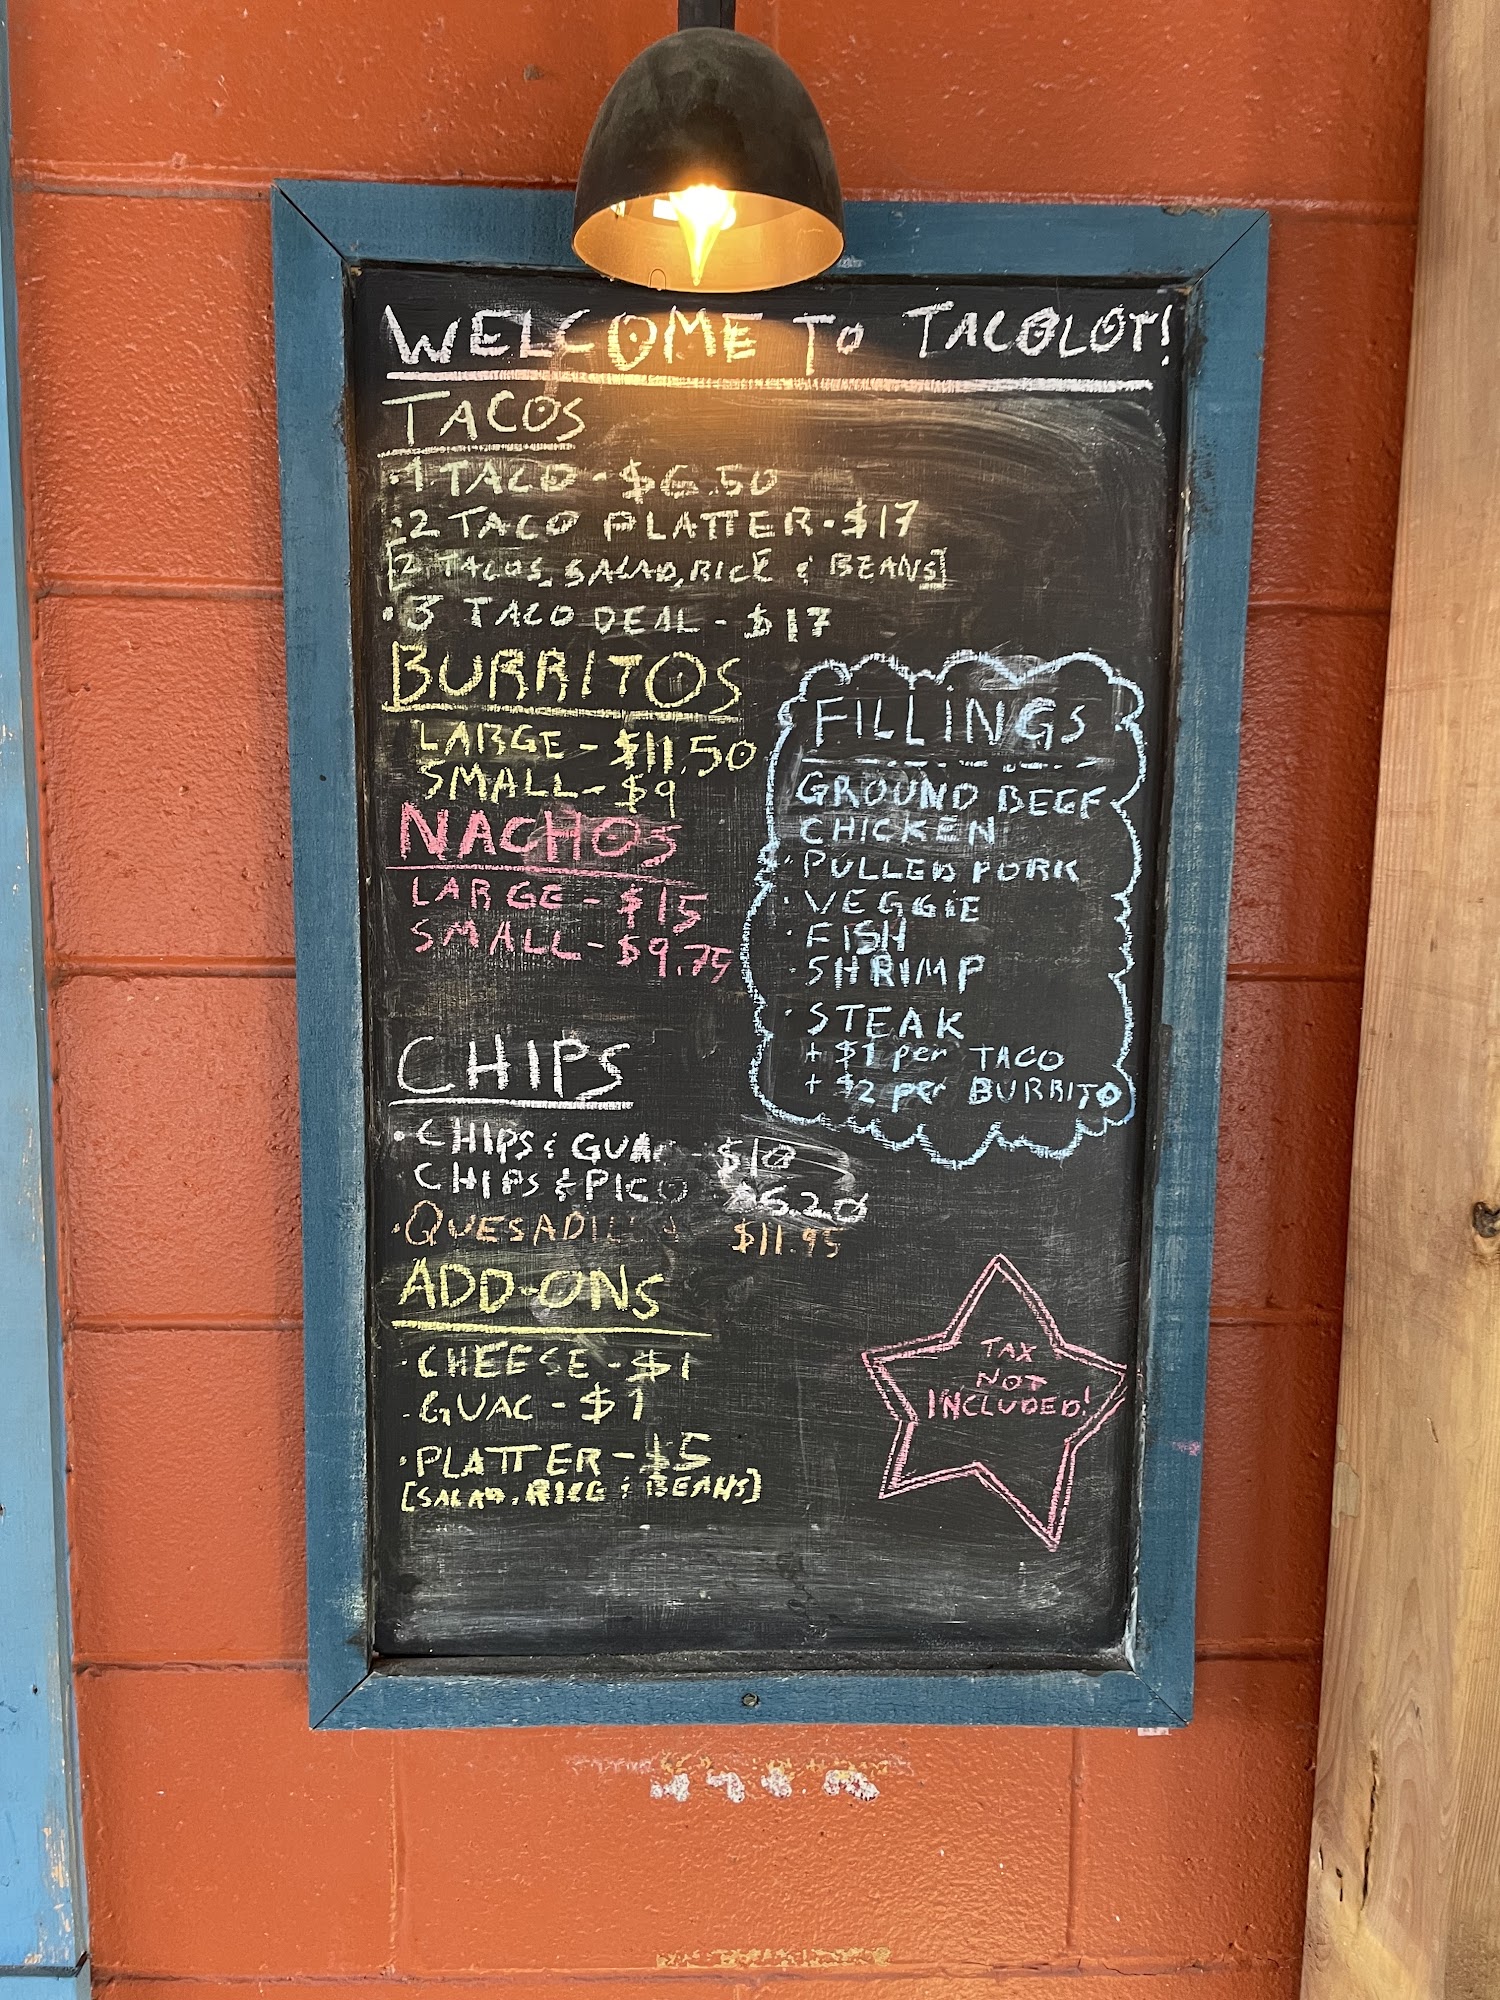 WELCOME TO TACOLOT!
TACOS
·1 TACO - $6.50
·2 TACO PLATTER - $17
[2 TACOS, SALAD, RICE & BEANS]
·3 TACO DEAL - $17
BURRITOS
LARGE - $11.50
SMALL - $9
NACHOS
LARGE - $15
SMALL - $9.75
FILLINGS
GROUND BEEF
CHICKEN
·PULLED PORK
·VEGGIE
·FISH
·SHRIMP
·STEAK
+ $1 per TACO
+ $2 per BURRITO
CHIPS
·CHIPS & GUAC - $10
CHIPS & PICO
·QUESADILLA $11.95
ADD-ONS
·CHEESE - $1
·GUAC - $1
·PLATTER - $5
[SALAD, RICE & BEANS]
TAX
NOT
INCLUDED!